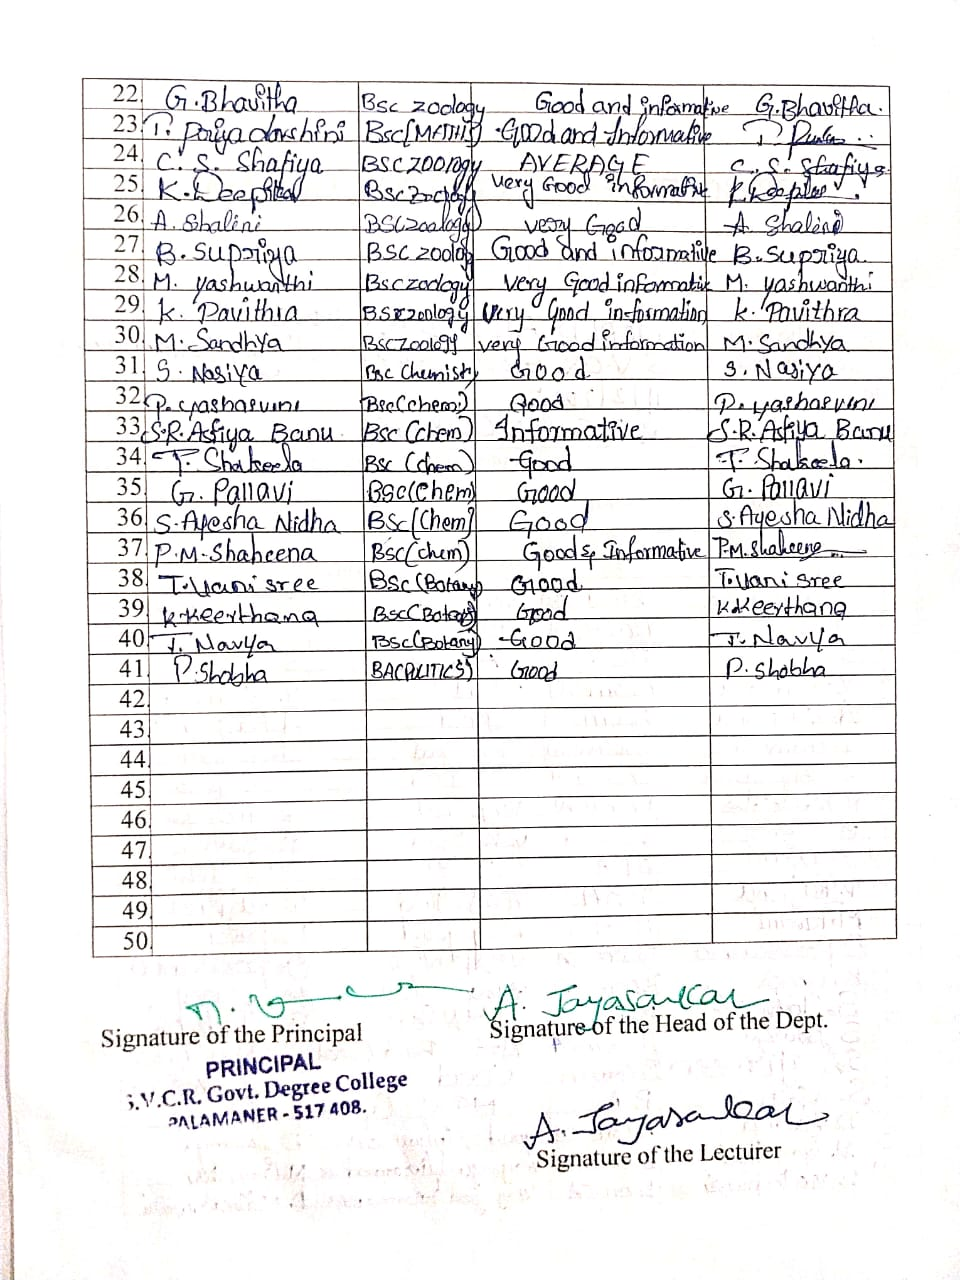 22. G.Bhavitha Bsc zoology Good and informative G.Bhavitha.
23. T. Priyadarshini Bsc(MATHS) Good and Informative
24. C. S. Shafiya BSC ZOOlogy AVERAGE C. S. Shafiya
25. K. Deepika Bsc Zoology very Good informative K Deepika
26. A. Shalini BSC zoology very Good A. Shalini
27. B. Supriya BSC zoology Good and informative B. Supriya
28. M. yashwanthi Bsc zoology very Good informative M. yashwanthi
29. K. Pavithra BSC zoology very Good information K. Pavithra
30. M. Sandhya BSC Zoology very Good information M. Sandhya
31. S. Nasiya Bsc Chemistry Good S. Nasiya
32. P. yashasvini Bsc(chem) Good P. yashasvini
33. S.R. Asfiya Banu Bsc (chem) Informative S.R. Asfiya Banu
34. T. Shakeela Bsc (chem) Good T. Shakeela.
35. G. Pallavi BSc(Chem) Good G. Pallavi
36. S. Ayesha Nidha BSc(Chem) Good S. Ayesha Nidha
37. P.M. Shaheena BSc(chem) Good & Informative P.M. Shaheena
38. T. Vani sree BSc (Botany) Good T. Vani sree
39. K. Keerthana BSc(Botany) Good K. Keerthana
40. T. Navya BSc(Botany) Good T. Navya
41. P. Shobha BA(POLITICS) Good P. Shobha
42.
43.
44.
45.
46.
47.
48.
49.
50.
A. Jayasankar
Signature of the Principal Signature of the Head of the Dept.
PRINCIPAL
S.V.C.R. Govt. Degree College
PALAMANER - 517 408.
A. Jayasankar
Signature of the Lecturer